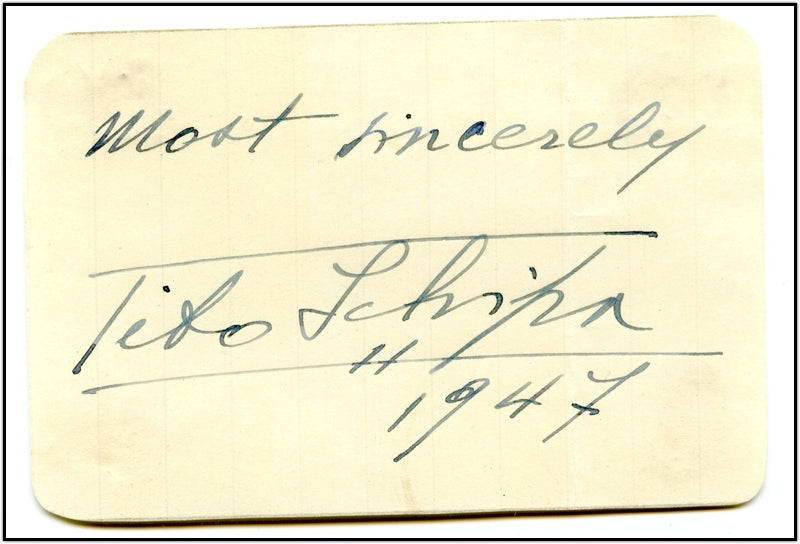 Most sincerely
Tito Schipa
1947